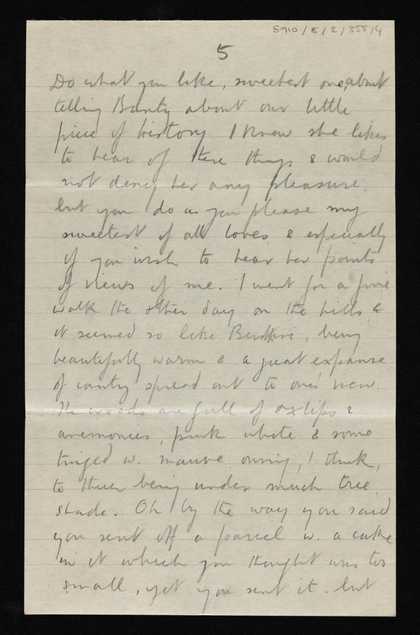 S910/8/2/355/4
5
Do what you like, sweetest one, about
telling Banty about our little
piece of history. I know she likes
to hear of these things & would
not deny her any pleasure.
but you do as you please my
sweetest of all loves & especially
if you wish to hear her points
of views of me. I went for a fine
walk the other day on the hills &
it seemed so like Berkshire, being
beautifully warm & a great expanse
of country spread out to one's view.
The woods are full of oxlips &
anemonies, pink white & some
tinged w. mauve owing, I think,
to their being under much tree
shade. Oh by the way you said
you sent off a parcel w. a cake
in it which you thought was too
small, yet you sent it. but